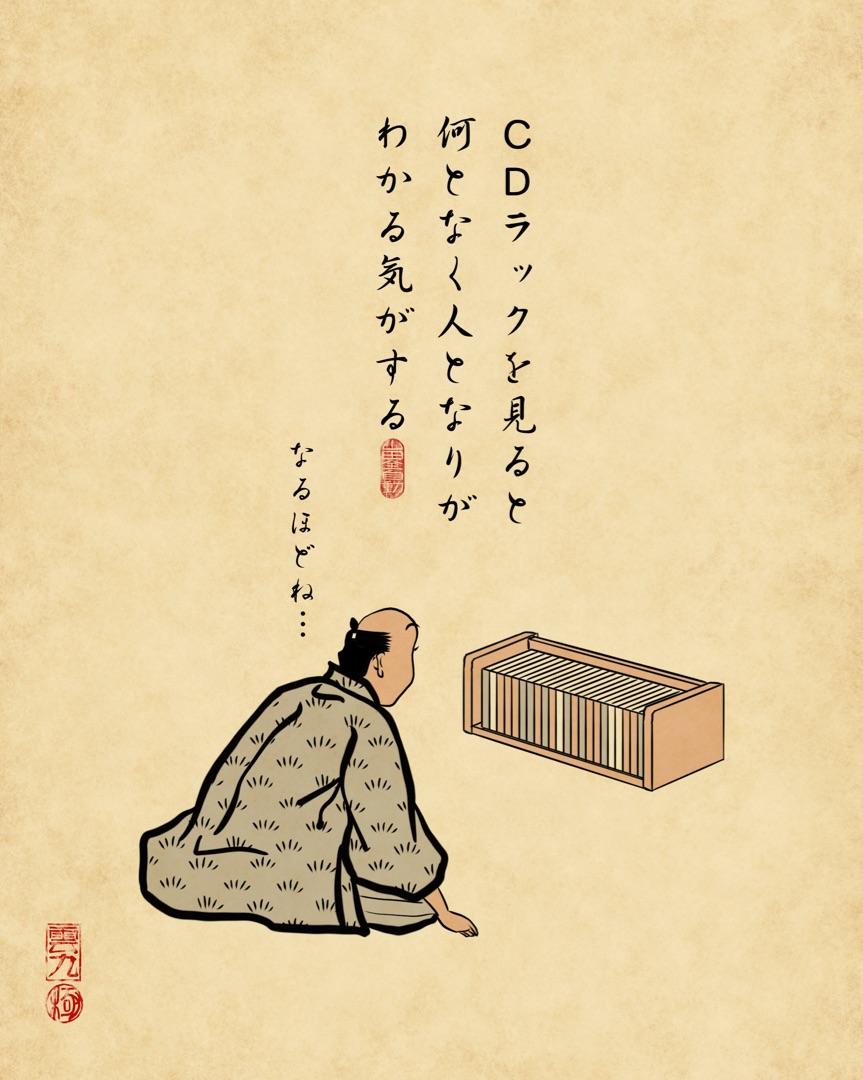 CDラックを見ると
何となく人となりが
わかる気がする
なるほどね…